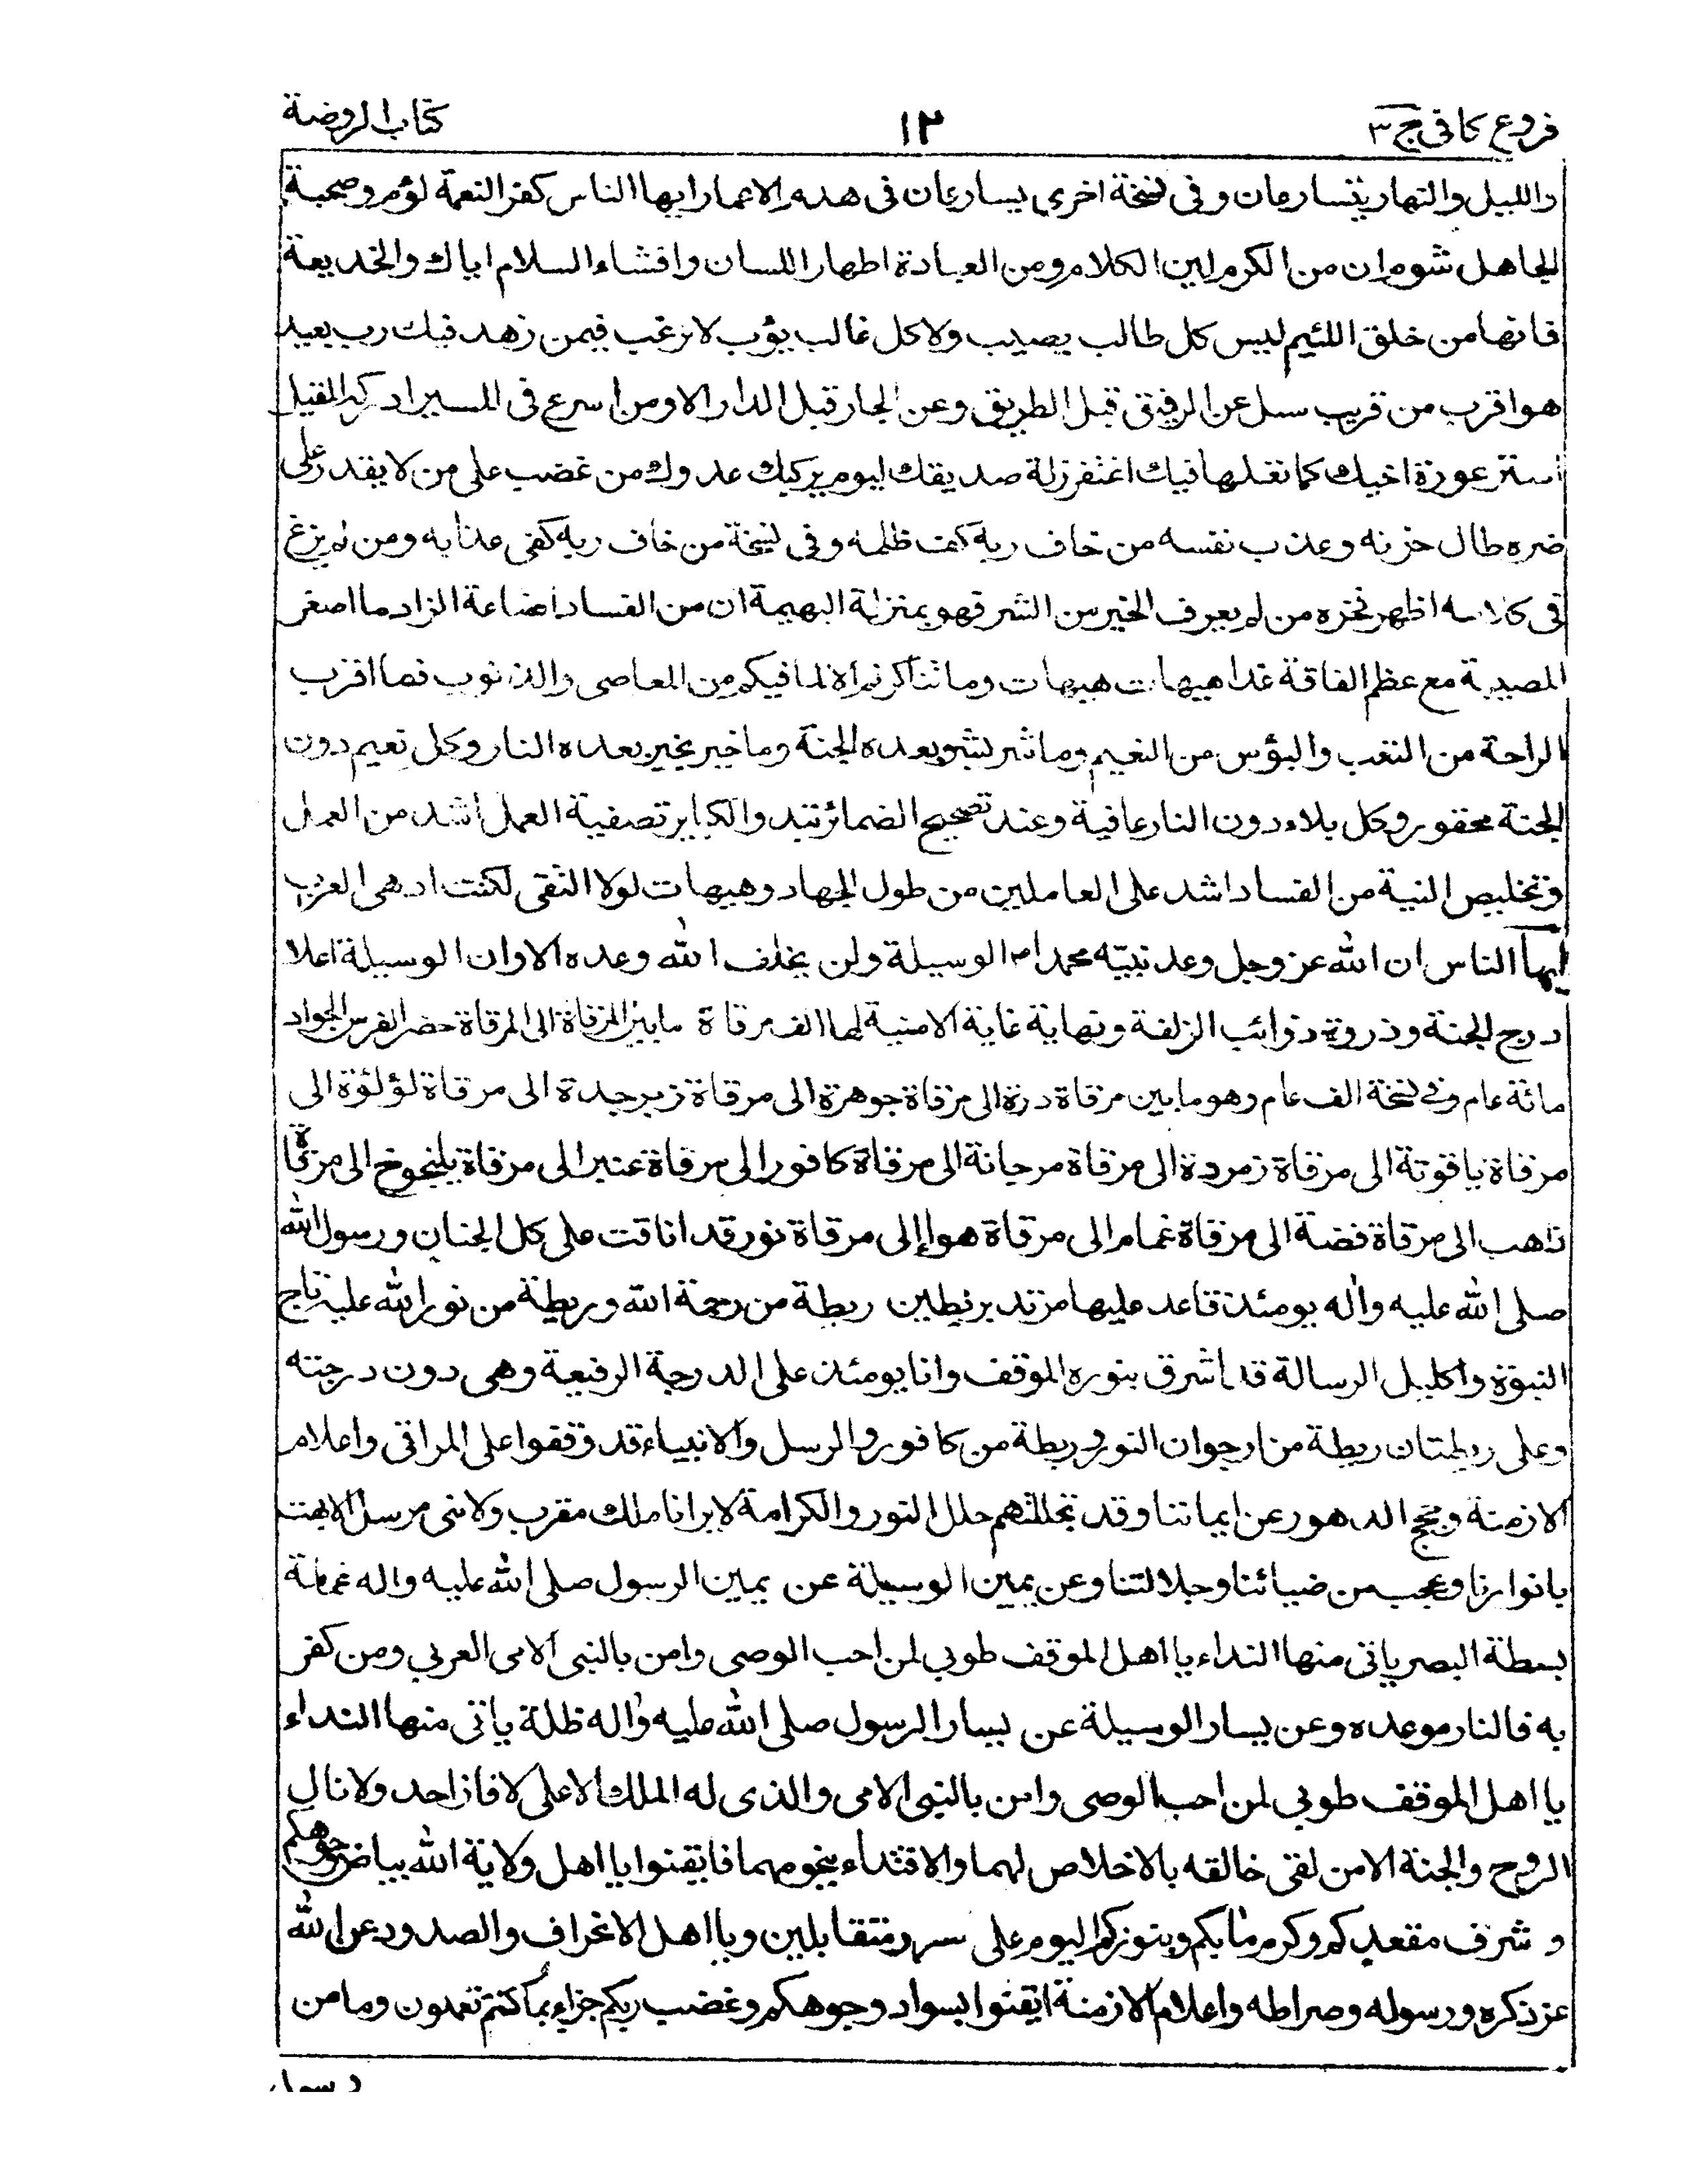 فروع كافى ج ٣
١٢
كتاب الروضة
والليل والنهار يتسارعان وفى نسخة اخرى يسارعان فى هدم الاعمار ايها الناس كفر النعمة لؤم وصحبة
الجاهل شوم ان من الكرم لين الكلام ومن العبادة اظهار اللسان وافشاء السلام اياك والخديعة
فانها من خلق اللئيم ليس كل طالب يصيب ولا كل غائب يؤب لا ترغب فيمن زهد فيك رب بعيد
هو اقرب من قريب سل عن الرفيق قبل الطريق وعن الجار قبل الدار الا ومن اسرع فى المسير ادركه المقيل
استر عورة اخيك كما تعلمها فيك اغتفر زلة صديقك ليوم يركبك عدوك من غضب على من لا يقدر على
ضره طال حزنه وعذب نفسه من خاف ربه كف ظلمه وفى نسخة من خاف ربه كفى عذابه ومن لم يزغ
فى كلامه اظهر فخره من لم يعرف الخير من الشر فهو بمنزلة البهيمة ان من الفساد اضاعة الزاد ما اصغر
المصيبة مع عظم الفاقة غدا هيهات هيهات وما تناكرتم الا لما فيكم من المعاصى والذنوب فما اقرب
الراحة من التعب والبؤس من النعيم وما شر بشر بعده الجنة وما خير بخير بعده النار وكل نعيم دون
الجنة محقور وكل بلاء دون النار عافية وعند تصحيح الضمائر تبدو الكبائر تصفية العمل اشد من العمل
وتخليص النية من الفساد اشد على العاملين من طول الجهاد وهيهات لولا التقى لكنت ادهى العرب
ايها الناس ان الله عز وجل وعد نبيّه محمدا ص الوسيلة ولن يخلف الله وعده الا وان الوسيلة اعلا
درج الجنة وذروة ذوائب الزلفة ونهاية غاية الامنية لها الف مرقاة ما بين المرقاة الى المرقاة حضر الفرس الجواد
مائة عام وفى نسخة الف عام وهو ما بين مرقاة درة الى مرقاة جوهرة الى مرقاة زبرجدة الى مرقاة لؤلؤة الى
مرقاة ياقوتة الى مرقاة زمردة الى مرقاة مرجانة الى مرقاة كافور الى مرقاة عنبر الى مرقاة يلنجوج الى مرقاة
ذهب الى مرقاة فضة الى مرقاة غمام الى مرقاة هواء الى مرقاة نور قد انافت على كل الجنان ورسول الله
صلى الله عليه وآله يومئذ قاعد عليها مرتد بريطتين ريطة من رحمة الله وريطة من نور الله عليه تاج
النبوة واكليل الرسالة قد اشرق بنوره الموقف وانا يومئذ على الدرجة الرفيعة وهى دون درجته
وعلى ريطتان ريطة من ارجوان النور وريطة من كافور والرسل والانبياء قد وقفوا على المراقى واعلام
الازمنة وحجج الدهور عن ايماننا وقد تجللتهم حلل النور والكرامة لا يرانا ملك مقرب ولا نبى مرسل الا بهت
بانوارنا وعجب من ضيائنا وجلالتنا وعن يمين الوسيلة عن يمين الرسول صلى الله عليه واله غمامة
بسطة البصر ياتى منها النداء يا اهل الموقف طوبى لمن احب الوصى وامن بالنبى الامى العربي ومن كفر
به فالنار موعده وعن يسار الوسيلة عن يسار الرسول صلى الله عليه وآله ظلة ياتى منها النداء
يا اهل الموقف طوبى لمن احب الوصى وامن بالنبى الامى والذى له الملك الاعلى لا فاز احد ولا نال
الروح والجنة الا من لقى خالقه بالاخلاص لهما والاقتداء بنجومهما فايقنوا يا اهل ولاية الله ببياض وجوهكم
و شرف مقعدكم وكرم مآبكم وبفوزكم اليوم على سرر متقابلين ويا اهل الانحراف والصدود عن الله
عز ذكره ورسوله وصراطه واعلام الازمنة ايقنوا بسواد وجوهكم وغضب ربكم جزاء بما كنتم تعملون وما من
رسول